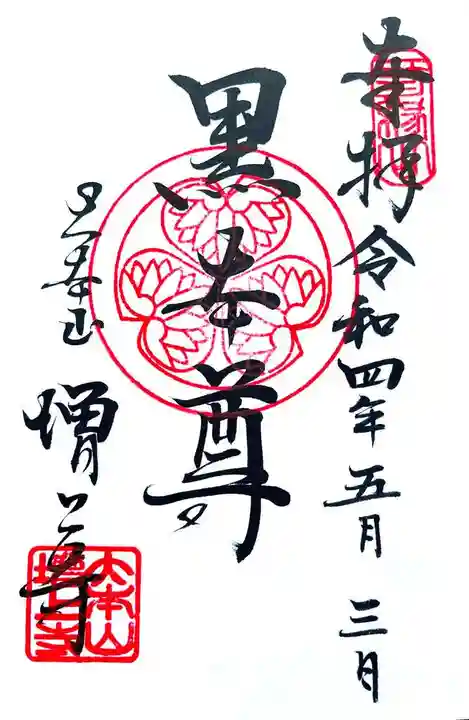 奉拝 令和四年五月三日
黒本尊
三縁山
増上寺
大本山
増上寺